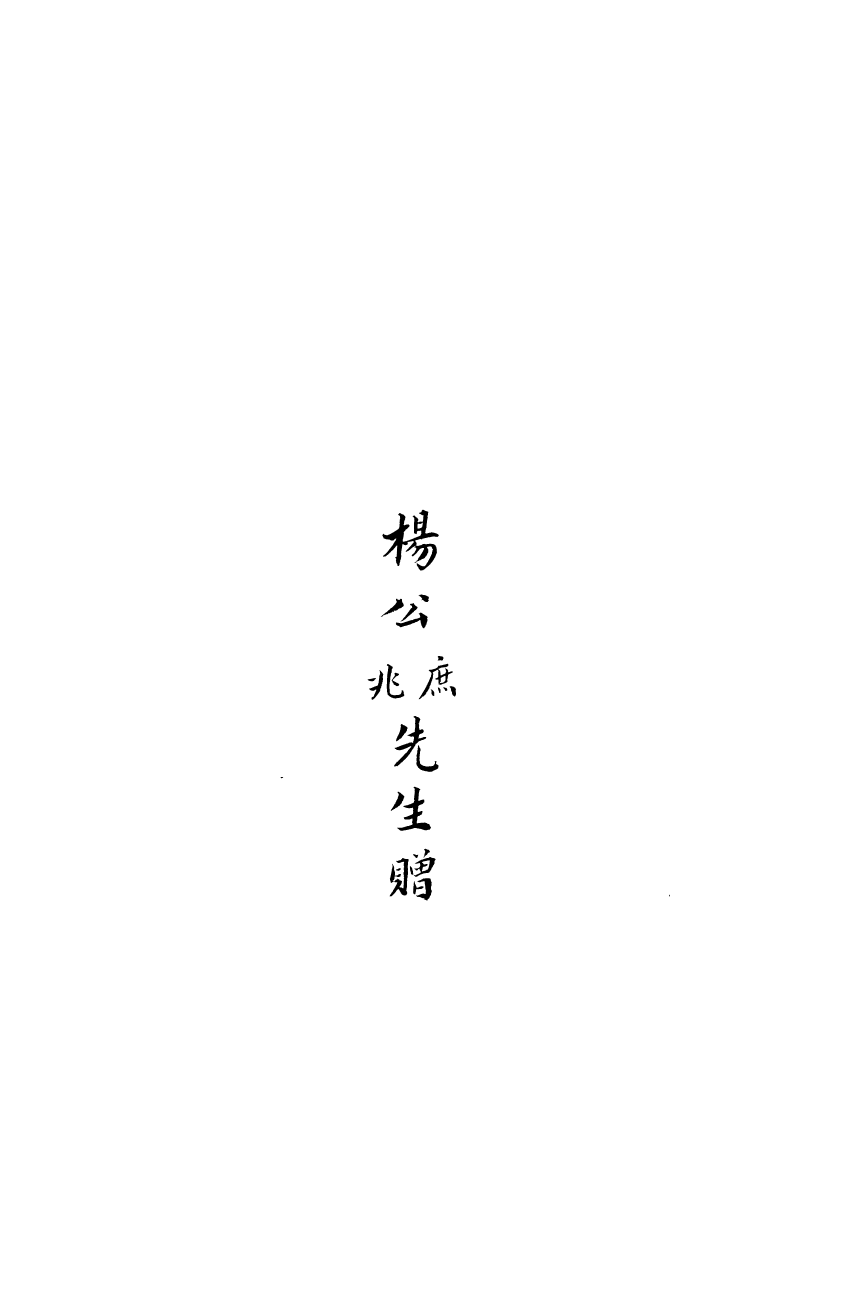 楊公庶兆先生贈